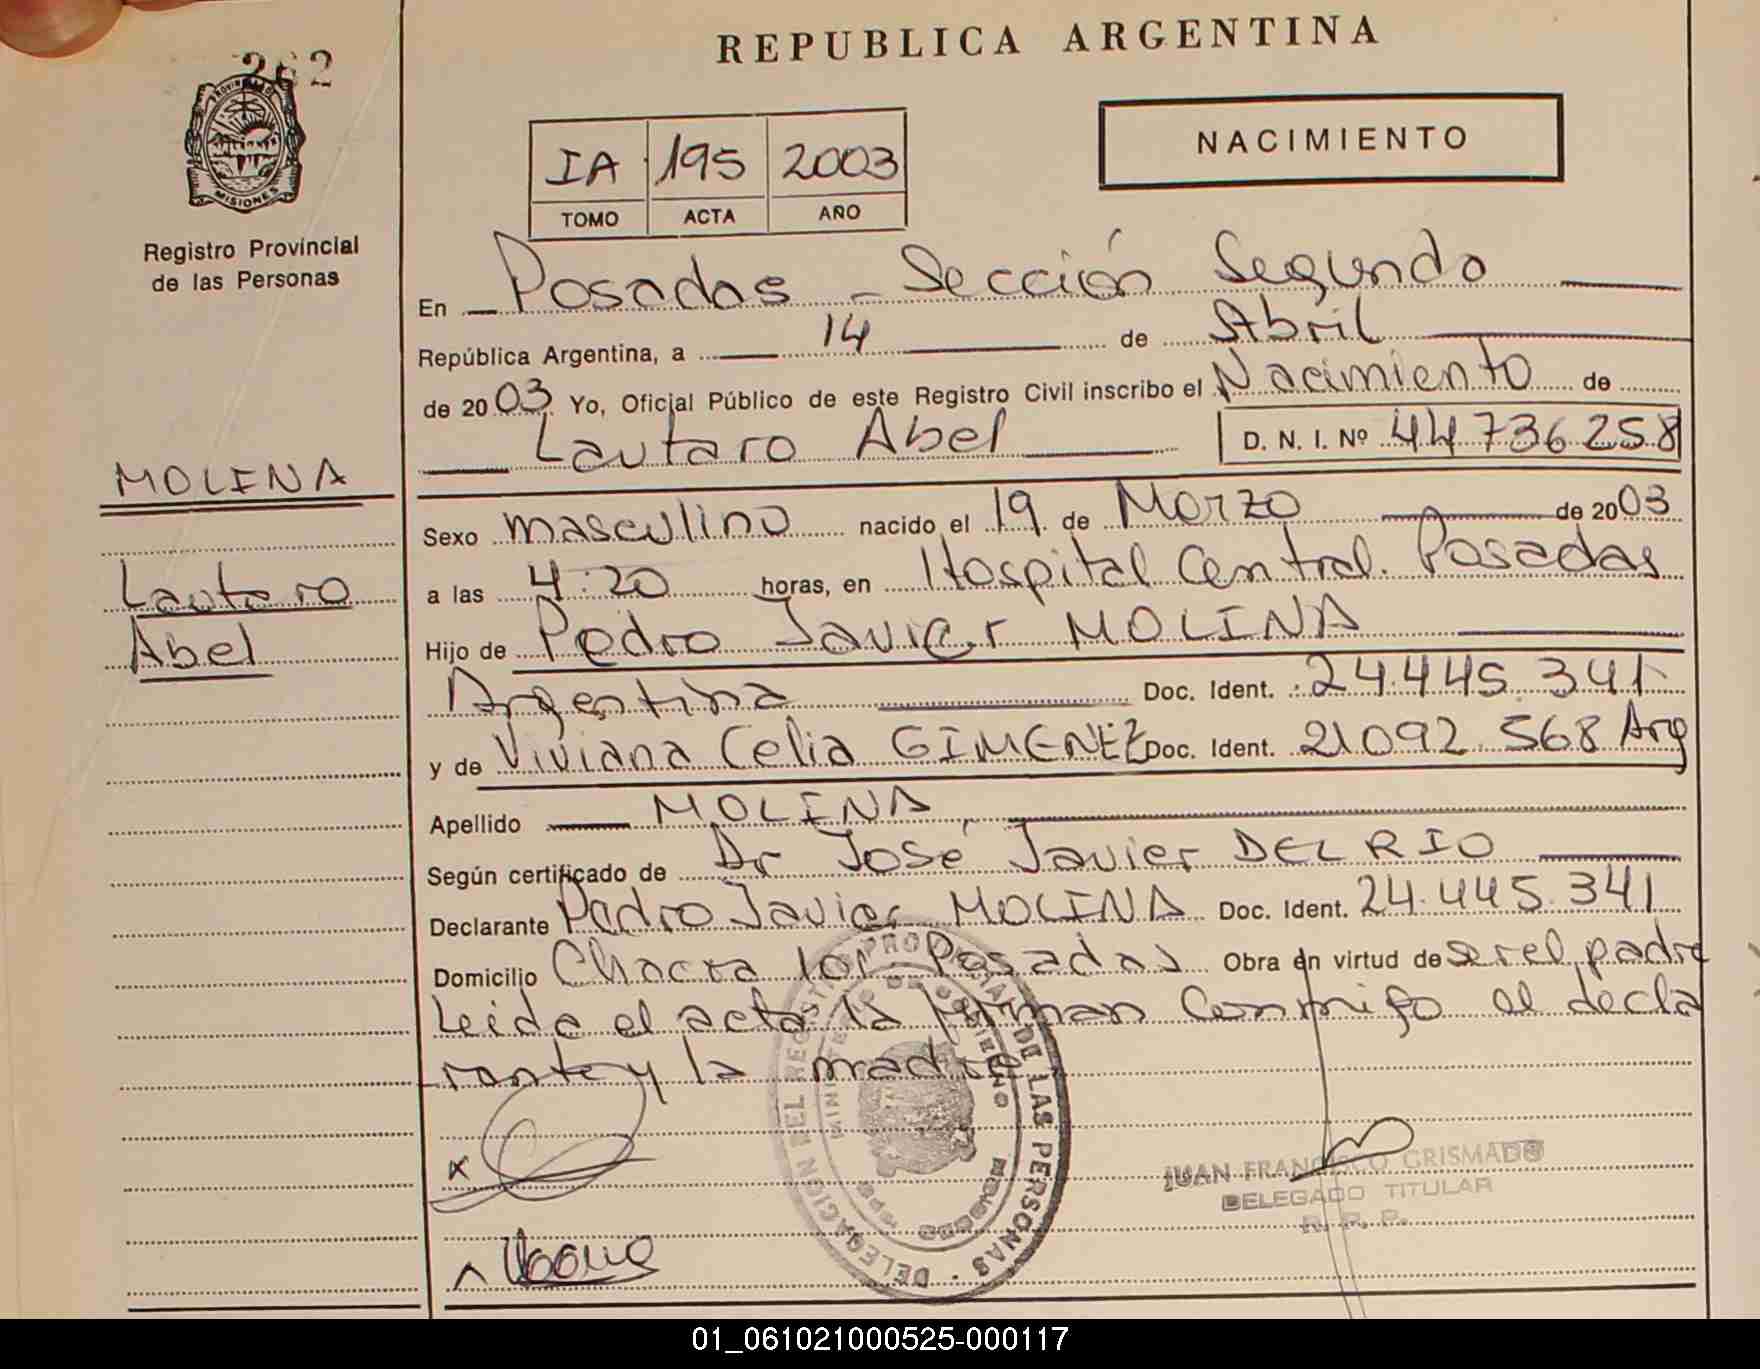 262
REPUBLICA ARGENTINA
PROVINCIA DE
MISIONES
Registro Provincial
de las Personas
IA 195 2003
TOMO ACTA AÑO
NACIMIENTO
En Posadas - Sección Segunda
República Argentina, a 14 de Abril
de 2003 Yo, Oficial Público de este Registro Civil inscribo el Nacimiento de
Lautaro Abel D. N. I. Nº 44736258
MOLINA
Lautaro
Abel
Sexo masculino nacido el 19 de Marzo de 2003
a las 4:20 horas, en Hospital Central. Posadas
Hijo de Pedro Javier MOLINA
Argentina Doc. Ident. 24.445.341
y de Viviana Celia GIMENEZ Doc. Ident. 21092.568 Arg
Apellido MOLINA
Según certificado de Dr José Javier DEL RIO
Declarante Pedro Javier MOLINA Doc. Ident. 24.445.341
Domicilio Chacra 101. Posadas Obra en virtud de ser el padre
Leida el acta la firman conmigo el decla
rante y la madre
x
DELEGACION DEL REGISTRO PROVINCIAL DE LAS PERSONAS
MINISTERIO DE GOBIERNO
JUAN FRANCISCO GRISMADO
DELEGADO TITULAR
R. P. P.
01_061021000525-000117